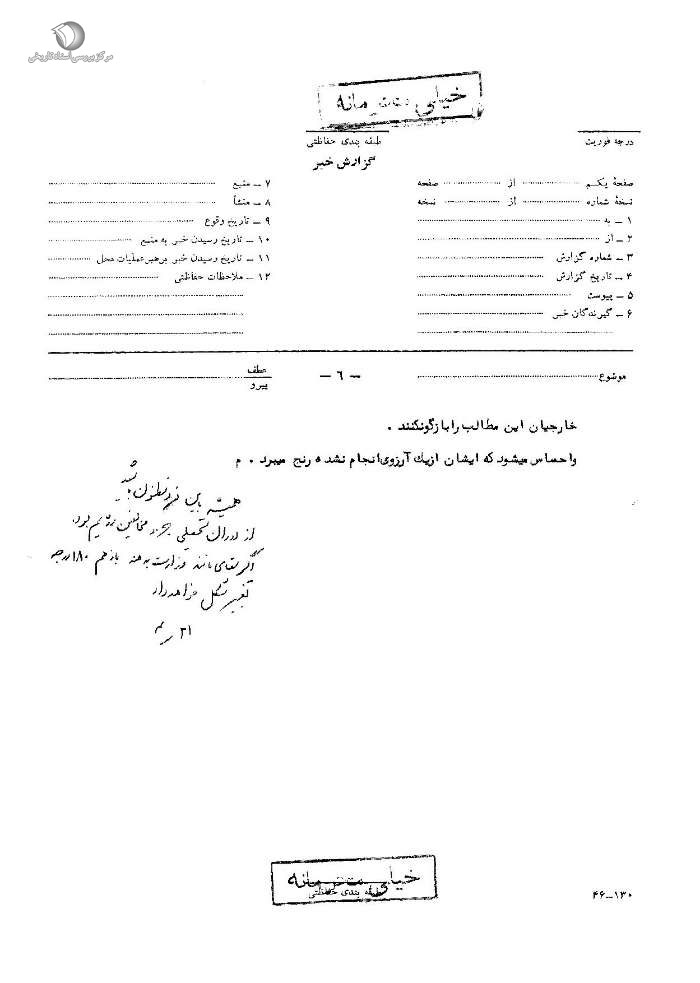 مرکز بررسی اسناد تاریخی
خیلی محرمانه
درجه فوریت
طبقه بندی حفاظتی
گزارش خبر
صفحهٔ یکم ............ از ............ صفحه
نسخهٔ شماره ............ از ............ نسخه
۱ ــ به
۲ ــ از
۳ ــ شماره گزارش
۴ ــ تاریخ گزارش
۵ ــ پیوست
۶ ــ گیرندگان خبر
۷ ــ منبع
۸ ــ منشأ
۹ ــ تاریخ وقوع
۱۰ ــ تاریخ رسیدن خبر به منبع
۱۱ ــ تاریخ رسیدن خبر برهبر عملیات محل
۱۲ ــ ملاحظات حفاظتی
موضوع
ــ ٦ ــ
عطف
پیرو
خارجیان این مطالب را بازگو نکنند .
و احساس میشود که ایشان از یک آرزوی انجام نشده رنج میبرد . م
همیشه باین فرد ظنون باشید
از دوران تحصیلی جزو مخالفین رژیم بود.
اگر مقامی مانند وزارت بدهند باز هم ۱۸۰ درجه
تغییر شکل خواهد داد
خیلی محرمانه
طبقه بندی حفاظتی
۴۶ــ۱۳۰